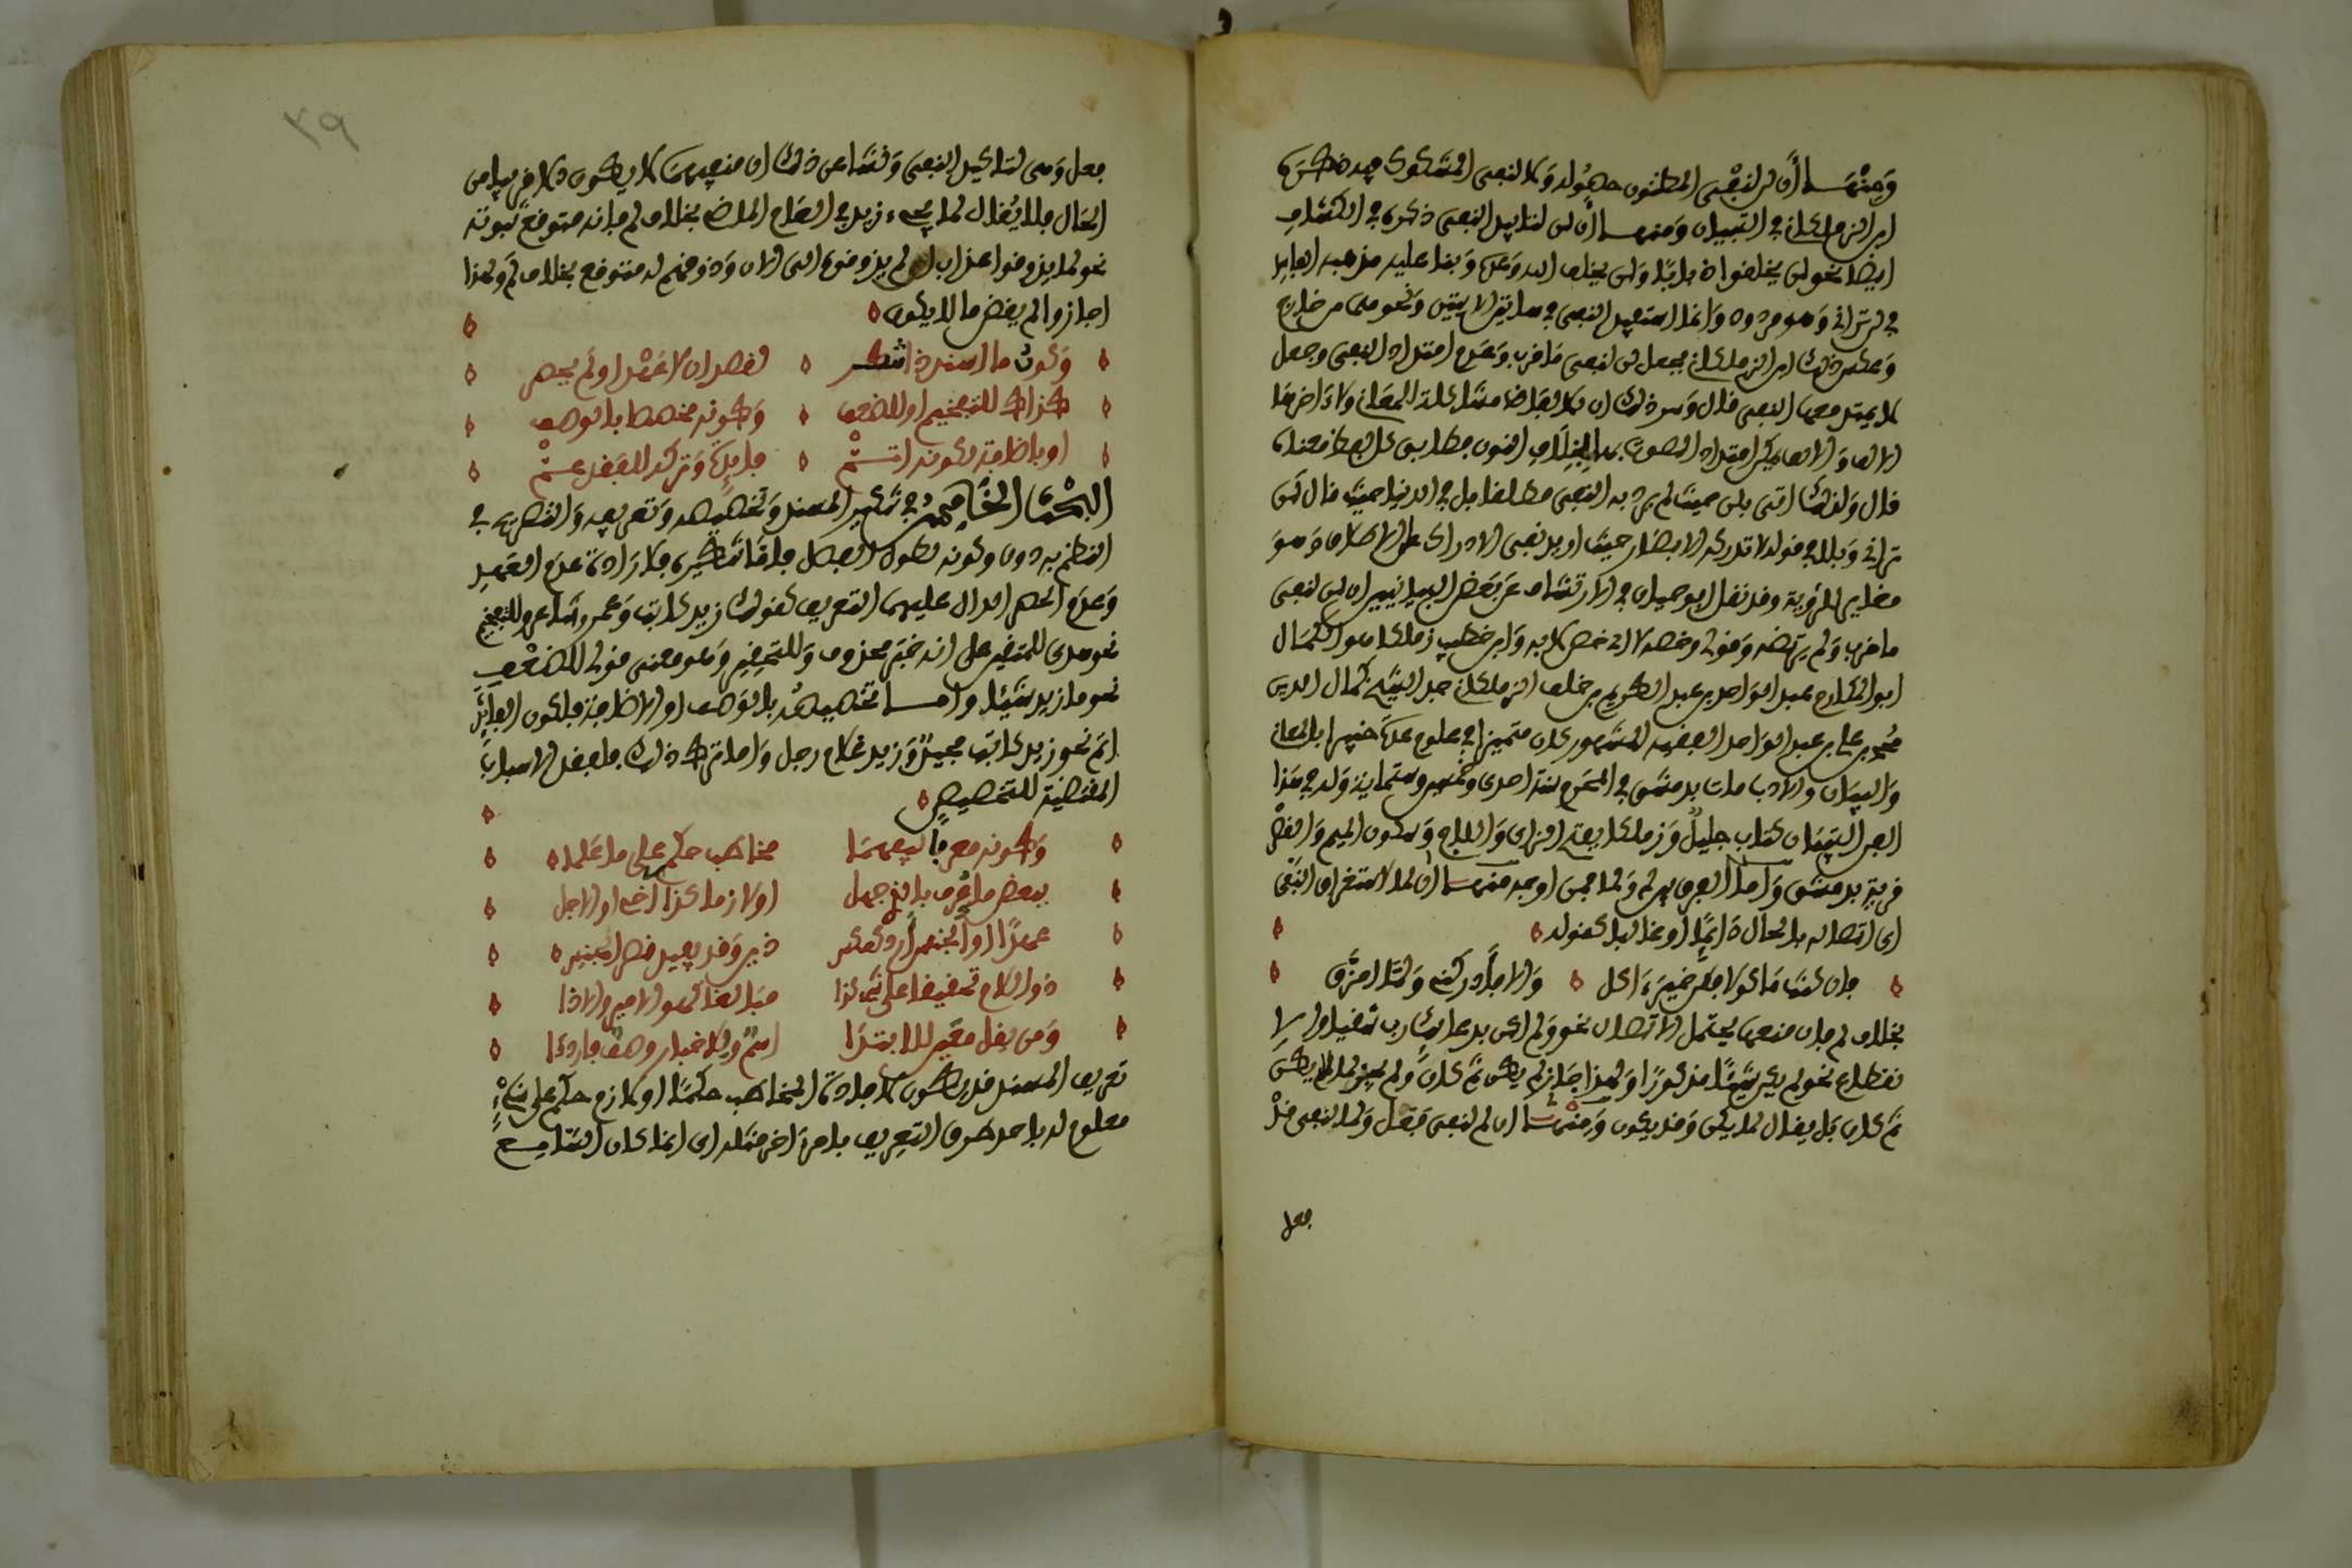 ومنها أن لن لنفي المظنون حصوله ولا لنفي المشكوك فيه ذكره
ابن الزملكاني في التبيان ومنها أن لن لتابيد النفي ذكره في الكشاف
ايضا نحو لن يخلقوا ذبابا ولن يخلف الله وعده وبنا عليه مذهبه الفاسد
في لن تراني وهو مردود وانما استفيد النفي في هاتين الايتين ونحوهما من خارج
وعكس ذلك ابن الزملكاني فجعل لن لنفي ما قرب وعدم امتداد النفي وجعل
لا يمتد معها النفي قال وسر ذلك ان الالفاظ مشاكلة للمعاني ولا اخرها
الالف والالف يمكن امتداد الصوت بها بخلاف النون فطابق كل لفظ معناه
قال ولذلك اتى بلن حيث لم يرد به النفي مطلقا بل في الدنيا حيث قال لن
تراني وبلا في قوله لا تدركه الابصار حيث اريد نفي الادراك على الاطلاق وهو
مغاير للرؤية وقد نقل ابو حيان في الارتشاف عن بعض البيانيين ان لن لنفي
ما قرب ولم يرتضه وقولي وخصه لا الى خص لا به وابن خطيب زملكا هو الكمال
ابو المكارم عبد الواحد بن عبد الكريم بن خلف الزملكاني جد الشيخ كمال الدين
محمد بن علي بن عبد الواحد الفقيه المشهور كان متميزا في علوم عدة خبيرا بالمعاني
والبيان والادب مات بدمشق في المحرم سنة احدى وخمسين وستماية وله في هذا
الفن التبيان كتاب جليل وزملكا بفتح الزاى واللام وسكون الميم والقصر
قرية بدمشق واما الفرق بين لم ولما فمن اوجه منها أن لما لاستغراق النفي
اى اتصاله بالحال دائما او غالبا كقوله
فان كنت ماكولا فكن خير اكل والا فادركني ولما امزق
بخلاف لم فان منفيها يحتمل الاتصال نحو ولم اكن بدعائك رب شقيا والا
نقطاع نحو لم يكن شيئا مذكورا ولهذا جاز لم يكن ثم كان ولم يجز لما يكن
ثم كان بل يقال لما يكن وقد يكون ومنها ان لم لنفي فعل ولما لنفي قد
فعل
٣٩
فعل وهى لتاكيد النفي ونشا عن ذلك ان منفيها لا يكون الا قريبا من
الحال فلا يقال لما يجىء زيد في العام الماضي بخلاف لم فانه متوقع ثبوته
نحو لما يذوقوا عذاب اى لم يذوقوه الى الان وذوقهم له متوقع بخلاف لم ولهذا
اجازوا لم يقض ما لا يكون
وكون ما اسند ذا تنكر لقصد ان لا عهد او لم يحصر
كذاك للتفخيم او للضعف وكونه مخصصا بالوصف
او باضافة لكونه اتم فايدة وتركه للفقد عم
البحث الخامس في تنكير المسند وتخصيصه وتعريفه والتصريح في
النظم به دون وكونه لطول الفصل فاما تنكيره فلارادة عدم العهد
وعدم الحصر الدال عليهما التعريف كقولك زيد كاتب وعمرو شاعر وللتفخيم
نحو هدى للمتقين على انه خبر محذوف وللتحقير وهو معنى قولي للضعف
نحو ما زيد شيئا واما تخصيصه بالوصف او الاضافة فلكون الفايدة
اتم نحو زيد كاتب مجيد وزيد غلام رجل واما ترك ذلك فلفقد الاسباب
المقتضية للتخصيص
وكونه معرفا ليفهما مخاطب حكم على ما علما
ببعض ما عرف بالذي جهل اولازما كذا اخر او الاجل
عهدا او الجنس اردد كعكس ذين وقد يفيد قصر الجنس
ذو اللام تحقيقا على شى كذا مبالغا كهو الامير والاذا
ومن يقل معين للابتدا اسم والاخبار وصف فاردد
تعريف المسند قد يكون لافادة المخاطب حكما او لازم حكم على شىء
معلوم له باحد طرق التعريف بامر اخر مثله اى اذا كان السامع